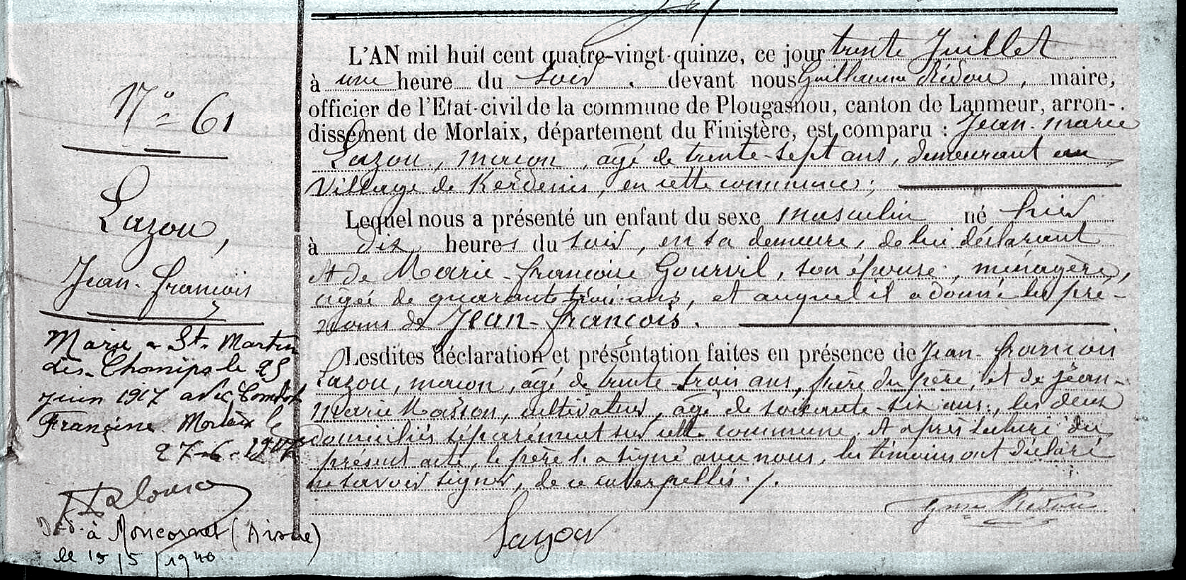 N° 61
Lazou,
Jean-François
Marié à St. Martin
des-Champs le 25
juin 1917 avec Combot
Françine Morlaix le
27-6-1917
Déd. à Moncornet (Aisne)
le 15/5/1940
L'AN mil huit cent quatre-vingt-quinze, ce jour trente Juillet
à une heure du soir. devant nous Guillaume Rédou, maire,
officier de l'Etat-civil de la commune de Plougasnou, canton de Lanmeur, arron-
dissement de Morlaix, département du Finistère, est comparu : Jean-Marie
Lazou, maçon, âgé de trente-sept ans, demeurant au
village de Kerdenis, en cette commune;
Lequel nous a présenté un enfant du sexe masculin né hier
à dix heures du soir, en sa demeure, de lui déclarant
et de Marie-Françoise Gourvil, son épouse, ménagère,
âgée de quarante-trois ans, et auquel il a donné les pré-
noms de Jean-François.
Lesdites déclaration et présentation faites en présence de Jean-François
Lazou, maçon, âgé de trente-trois ans, frère du père, et de Jean-
Marie Masson, cultivateur, âgé de soixante-six ans, les deux
domiciliés séparément sur cette commune. Et après lecture du
présent acte, le père l'a signé avec nous, les témoins ont déclaré
ne savoir signer, de ce interpellés./.
Lazou
Gme Rédou